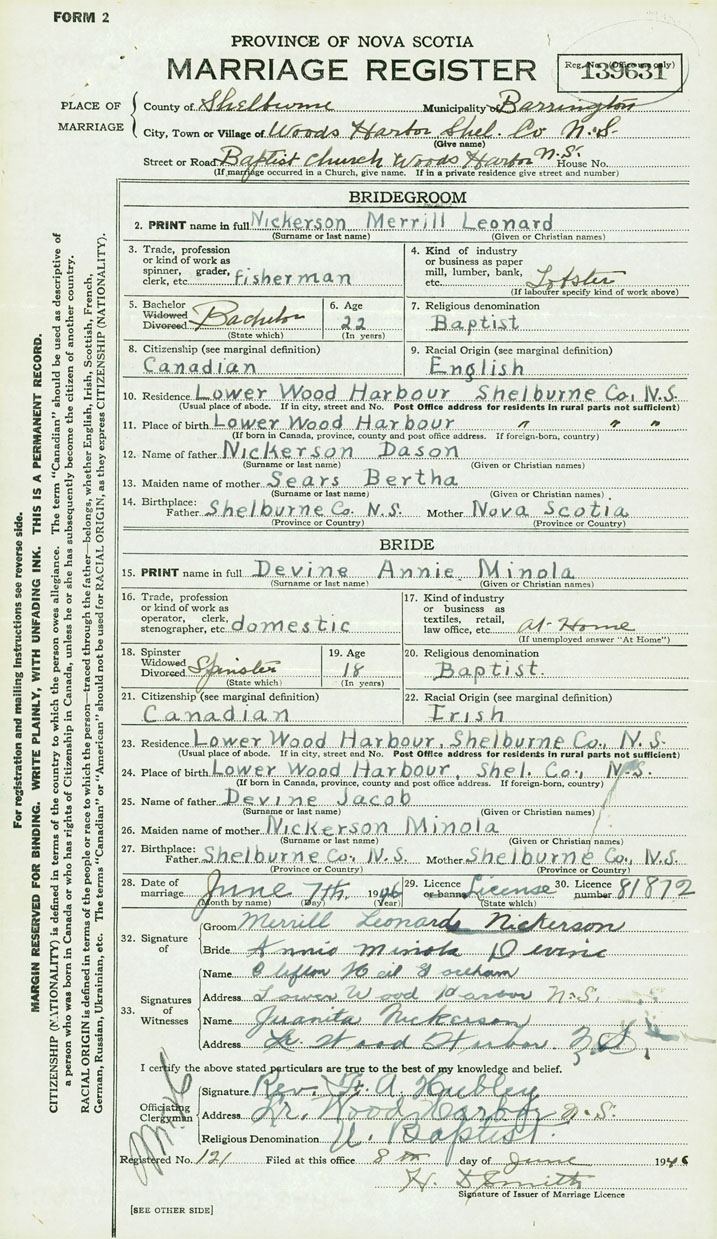 FORM 2
PROVINCE OF NOVA SCOTIA
MARRIAGE REGISTER
Reg. No. (Office use only)
139631
PLACE OF MARRIAGE
County of Shelburne Municipality of Barrington
City, Town or Village of Woods Harbor Shel. Co N.S.
(Give name)
Street or Road Baptist Church Woods Harbor N.S. House No.
(If marriage occurred in a Church, give name. If in a private residence give street and number)
BRIDEGROOM
2. PRINT name in full Nickerson Merrill Leonard
(Surname or last name) (Given or Christian names)
3. Trade, profession
or kind of work as
spinner, grader,
clerk, etc. fisherman
4. Kind of industry
or business as paper
mill, lumber, bank,
etc. Lobster
(If labourer specify kind of work above)
5. Bachelor
Widowed
Divorced Bachelor
(State which)
6. Age
22
(In years)
7. Religious denomination
Baptist
8. Citizenship (see marginal definition)
Canadian
9. Racial Origin (see marginal definition)
English
10. Residence Lower Wood Harbour Shelburne Co, N.S.
(Usual place of abode. If in city, street and No. Post Office address for residents in rural parts not sufficient)
11. Place of birth Lower Wood Harbour " " "
(If born in Canada, province, county and post office address. If foreign-born, country)
12. Name of father Nickerson Dason
(Surname or last name) (Given or Christian names)
13. Maiden name of mother Sears Bertha
(Surname or last name) (Given or Christian names)
14. Birthplace:
Father Shelburne Co. N.S. Mother Nova Scotia
(Province or Country) (Province or Country)
BRIDE
15. PRINT name in full Devine Annie Minola
(Surname or last name) (Given or Christian names)
16. Trade, profession
or kind of work as
operator, clerk,
stenographer, etc. domestic
17. Kind of industry
or business as
textiles, retail,
law office, etc. At Home
(If unemployed answer "At Home")
18. Spinster
Widowed
Divorced Spinster
(State which)
19. Age
18
(In years)
20. Religious denomination
Baptist.
21. Citizenship (see marginal definition)
Canadian
22. Racial Origin (see marginal definition)
Irish
23. Residence Lower Wood Harbour, Shelburne Co., N.S.
(Usual place of abode. If in city, street and No. Post Office address for residents in rural parts not sufficient)
24. Place of birth Lower Wood Harbour, Shel. Co., N.S.
(If born in Canada, province, county and post office address. If foreign-born, country)
25. Name of father Devine Jacob
(Surname or last name) (Given or Christian names)
26. Maiden name of mother Nickerson Minola
(Surname or last name) (Given or Christian names)
27. Birthplace:
Father Shelburne Co., N.S. Mother Shelburne Co., N.S.
(Province or Country) (Province or Country)
28. Date of marriage June 7th, 1946
(Month by name) (Day) (Year)
29. Licence or banns License
(State which)
30. Licence number 81872
32. Signature of
Groom Merrill Leonard Nickerson
Bride Annie Minola Devine
33. Signatures of Witnesses
Name Clifton Neil
Address Lower Wood Harbor N.S.
Name Juanita Nickerson
Address Lr. Wood Harbor N.S.
I certify the above stated particulars are true to the best of my knowledge and belief.
Officiating Clergyman
Signature Rev. A. Hubley
Address Lr. Wood Harbor N.S.
Religious Denomination U. Baptist.
Registered No. 121 Filed at this office 8th day of June 1946
H. D Smith
Signature of Issuer of Marriage Licence
[SEE OTHER SIDE]
For registration and mailing instructions see reverse side.
MARGIN RESERVED FOR BINDING. WRITE PLAINLY, WITH UNFADING INK. THIS IS A PERMANENT RECORD.
CITIZENSHIP (NATIONALITY) is defined in terms of the country to which the person owes allegiance. The term "Canadian" should be used as descriptive of
a person who was born in Canada or who has rights of Citizenship in Canada, unless he or she has subsequently become the citizen of another country.
RACIAL ORIGIN is defined in terms of the people or race to which the person—traced through the father—belongs, whether English, Irish, Scottish, French,
German, Russian, Ukrainian, etc. The terms "Canadian" or "American" should not be used for RACIAL ORIGIN, as they express CITIZENSHIP (NATIONALITY).